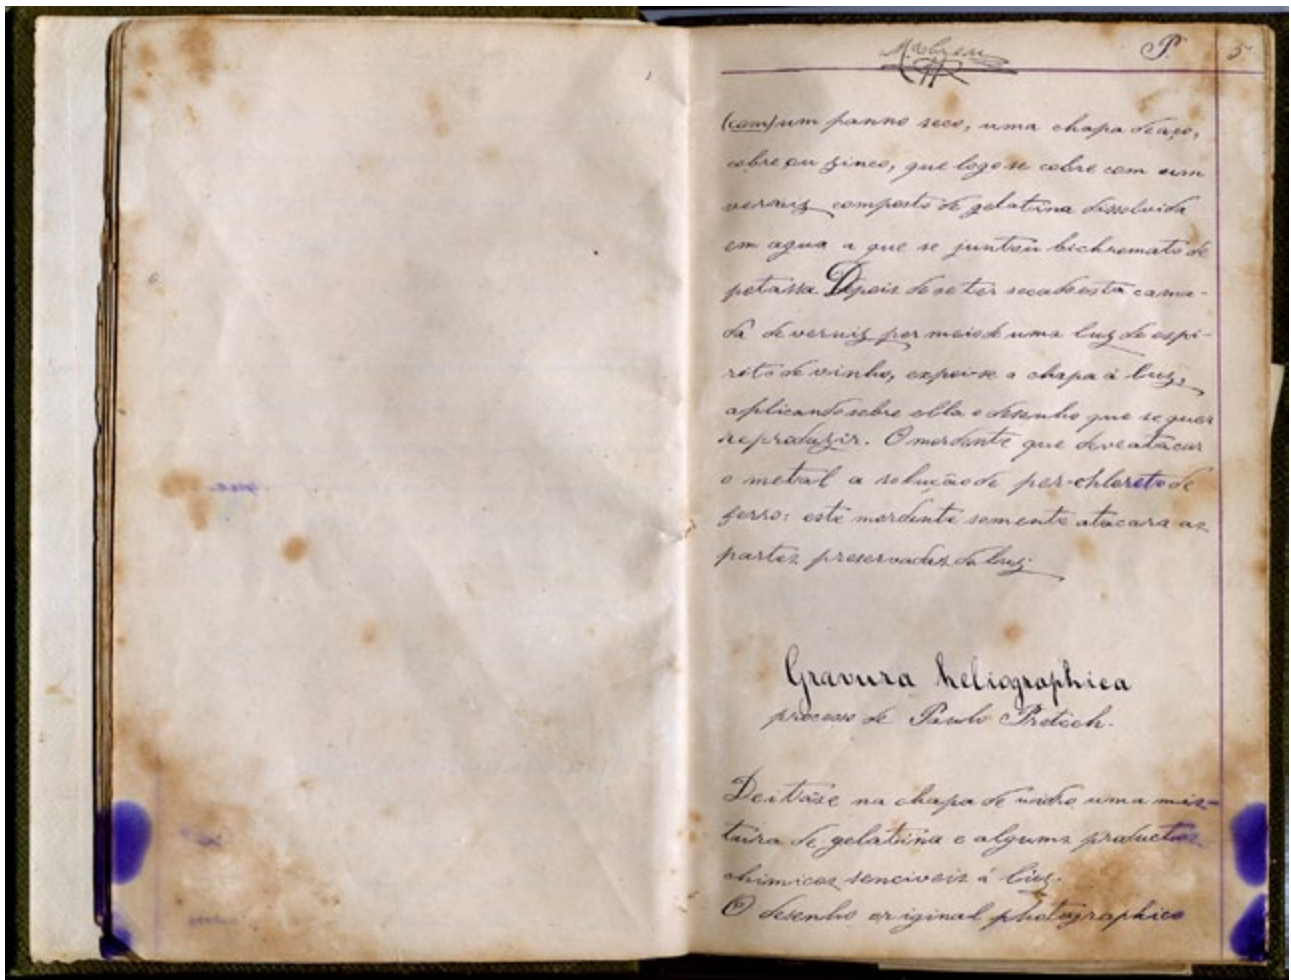 P. 5
(com) um panno seco, uma chapa de aço,
cobre ou zinco, que logo se cobre com um
verniz composto de gelatina dissolvida
em agua a que se juntou bichromato de
potassa. Depois de se ter secado esta cama-
da de verniz por meio de uma luz de espi-
rito de vinho, expoi-se a chapa á luz,
aplicando sobre ella o desenho que se quer
reproduzir. O mordente que deve atacar
o metal a solução de per-chloreto de
ferro: este mordente somente atacara as
partes preservadas da luz.
Gravura heliographica
processo de Paulo Pretsch.
Deita-se na chapa de vidro uma mis-
tura de gelatina e alguns productos
chimicos senciveis á luz.
O desenho original photographico